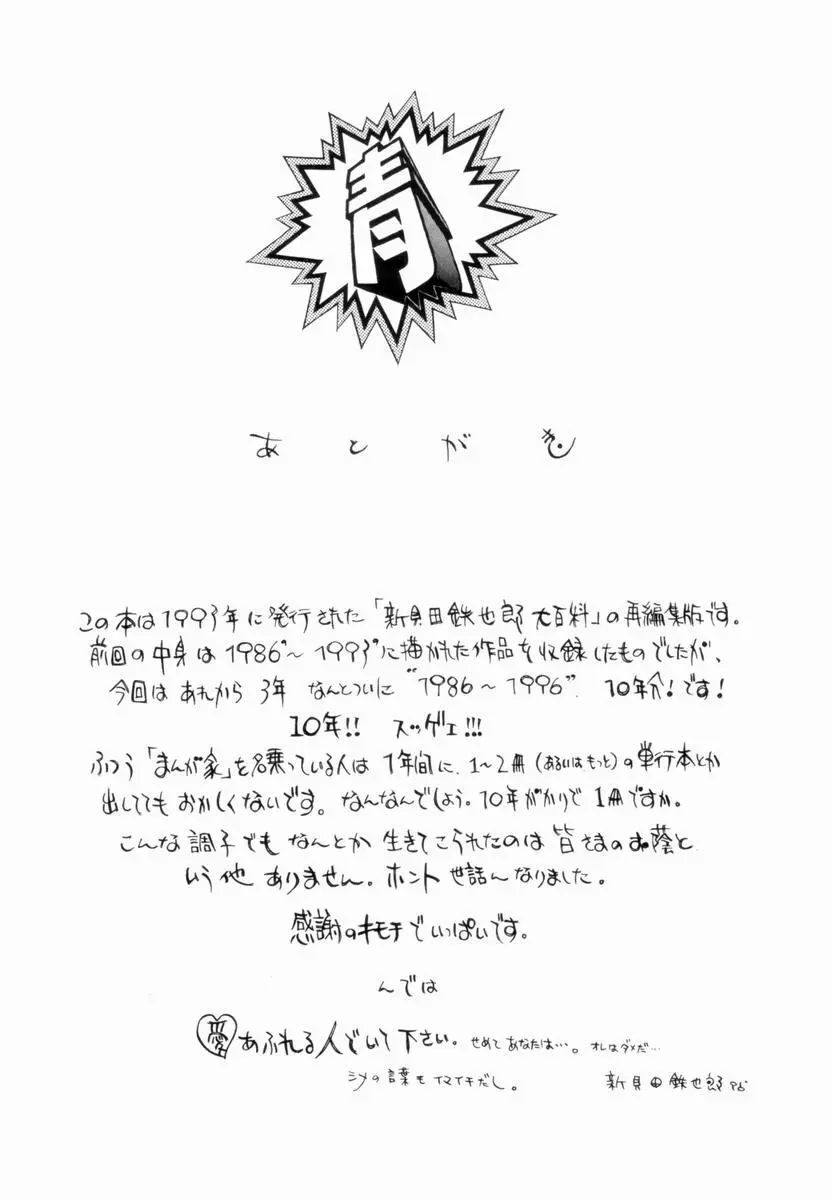 青
あとがき
この本は1993年に発行された「新貝田鉄也郎大百科」の再編集版です。
前回の中身は1986~1993に描かれた作品を収録したものでしたが、
今回はあれから3年なんとついに"1986~1996" 10年分!です!
10年!! スッゲェ!!!
ふつう「まんが家」を名乗っている人は1年間に、1~2冊(あるいはもっと)の単行本とか
出しててもおかしくないです。なんなんでしょう。10年がかりで1冊ですか。
こんな調子でもなんとか生きてこられたのは皆さまのお蔭と
いう他ありません。ホント世話んなりました。
感謝のキモチでいっぱいです。
んでは
愛あふれる人でいて下さい。せめてあなたは…。オレはダメだ…
シメの言葉もイマイチだし。 新貝田鉄也郎